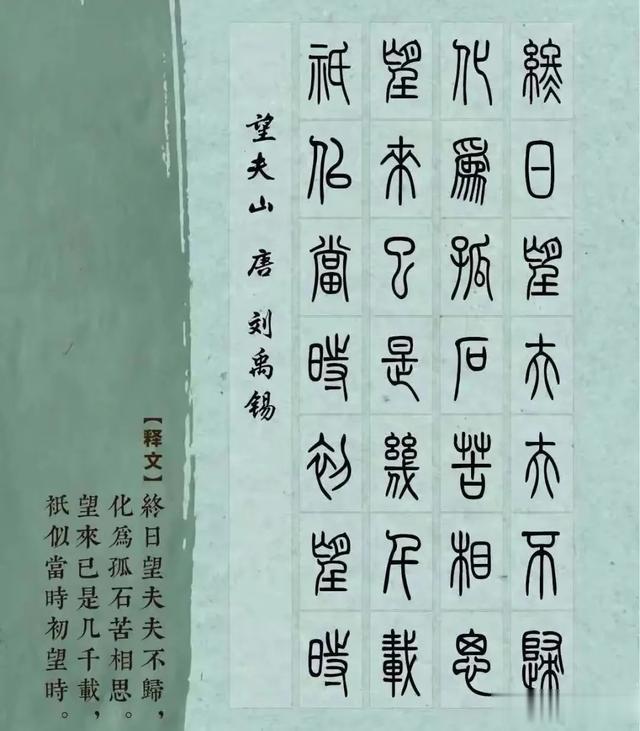 終日望夫夫不歸
化為孤石苦相思
望來已是幾千載
祇似當時初望時
望夫山 唐 刘禹锡
【释文】
終日望夫夫不歸，
化爲孤石苦相思。
望來已是几千載，
祇似當時初望時。